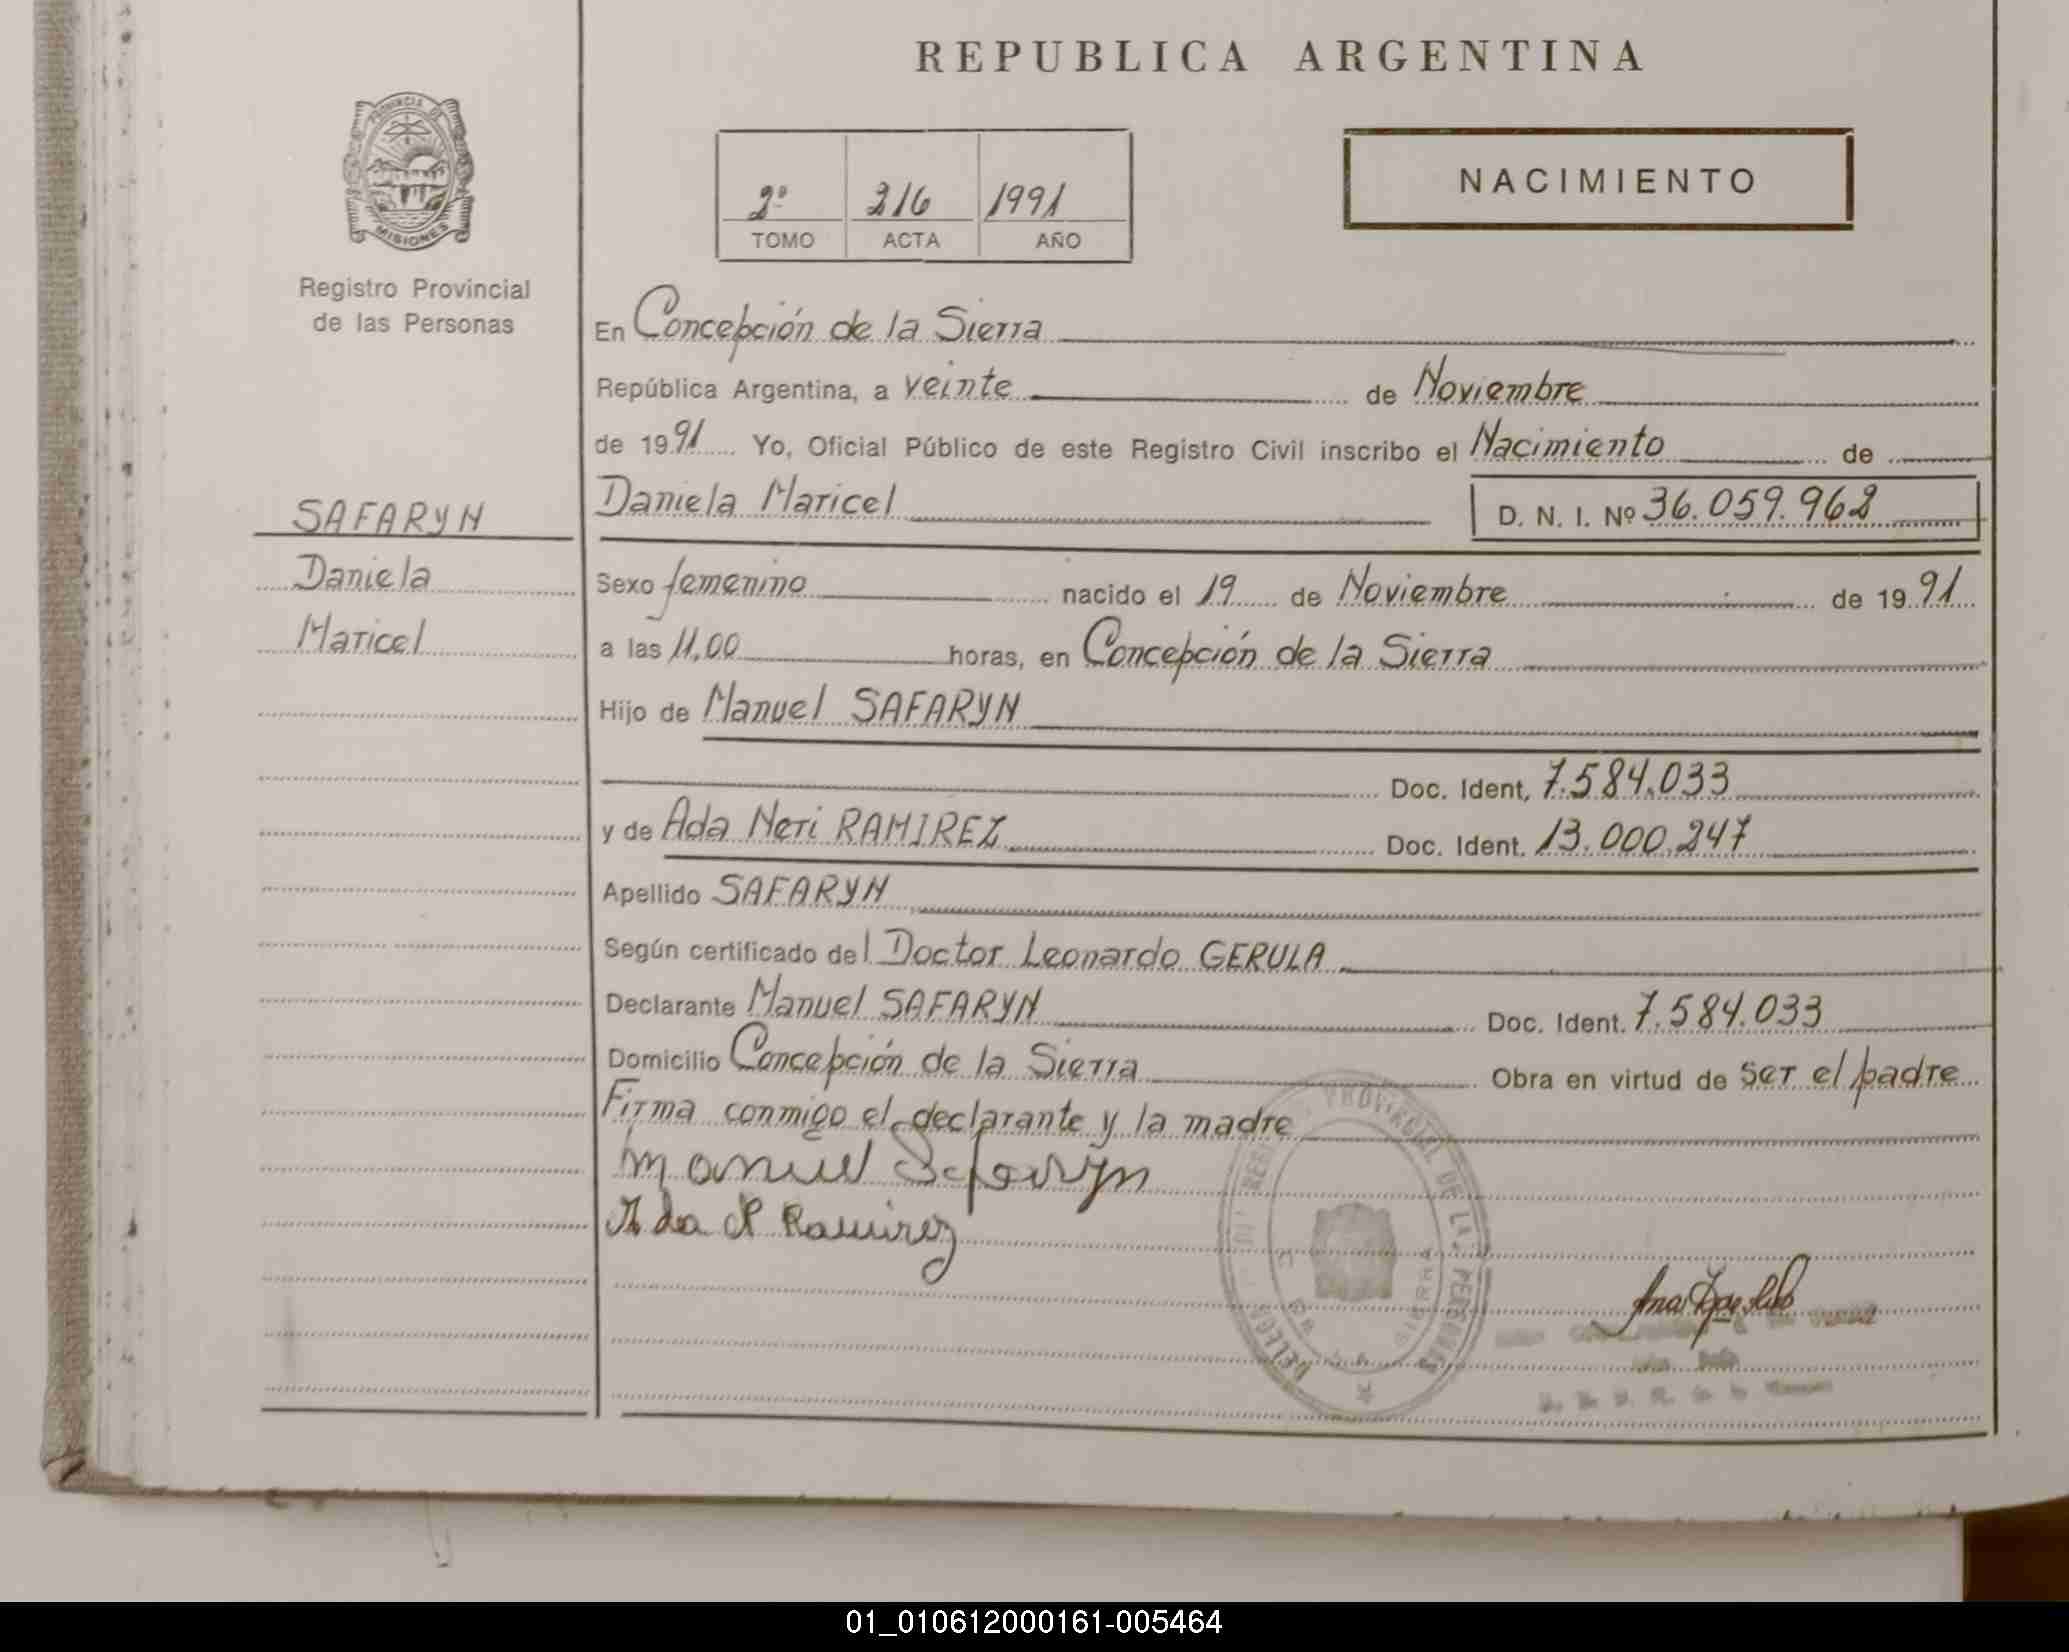 REPUBLICA ARGENTINA
PROVINCIA DE
MISIONES
Registro Provincial
de las Personas
2º 216 1991
TOMO ACTA AÑO
NACIMIENTO
En Concepción de la Sierra
República Argentina, a veinte de Noviembre
de 1991 Yo, Oficial Público de este Registro Civil inscribo el Nacimiento de
SAFARYN
Daniela
Maricel
Daniela Maricel D. N. I. Nº 36.059.962
Sexo femenino nacido el 19 de Noviembre de 1991
a las 11,00 horas, en Concepción de la Sierra
Hijo de Manuel SAFARYN
Doc. Ident, 7.584.033
y de Ada Neri RAMIREZ Doc. Ident. 13.000.247
Apellido SAFARYN
Según certificado del Doctor Leonardo GERULA
Declarante Manuel SAFARYN Doc. Ident. 7.584.033
Domicilio Concepción de la Sierra Obra en virtud de ser el padre
Firma conmigo el declarante y la madre
Manuel Safaryn
Ada N Ramirez
PROVINCIAL DE LAS PERSONAS
SIERRA
01_010612000161-005464